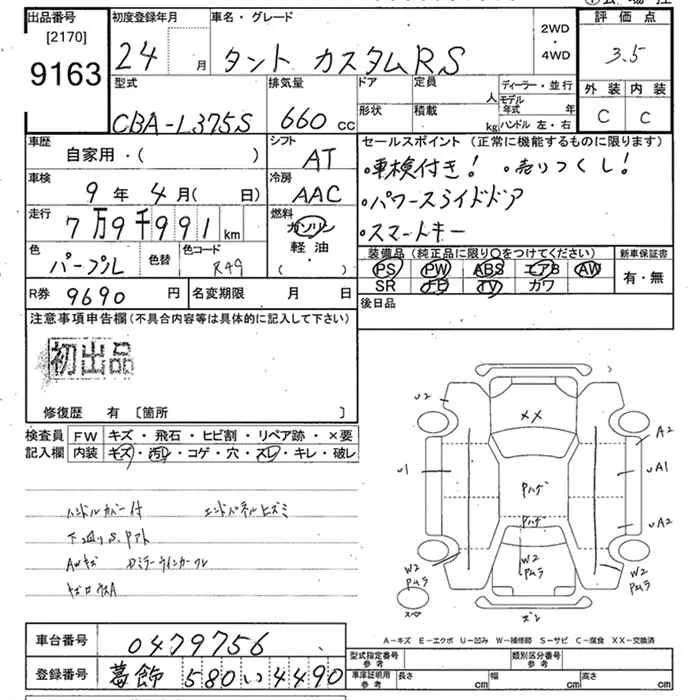 出品番号
[2170]
9163
初度登録年月
24 月
車名・グレード
タント カスタムRS
2WD
・
4WD
評価点
3.5
外装 内装
C C
型式
CBA-L375S
排気量
660 cc
ドア
形状
定員
人
積載
kg
ディーラー・並行
モデル年式 年
ハンドル 左・右
車歴
自家用・( )
シフト
AT
車検
9 年 4 月( 日)
冷房
AAC
走行
7万9千991 km
燃料
ガソリン
軽油
( )
色
パープル
色替
色コード
R49
R券 9690 円
名変期限 月 日
セールスポイント (正常に機能するものに限ります)
・車検付き! ・売りつくし!
・パワースライドドア
・スマートキー
装備品 (純正品に限り○をつけてください)
PS PW ABS エアB AW
SR ナビ TV カワ
新車保証書
有・無
後日品
注意事項申告欄 (不具合内容等は具体的に記入して下さい)
初出品
修復歴 有 〔箇所 〕
検査員記入欄
FW キズ・飛石・ヒビ割・リペア跡・×要
内装 キズ・汚レ・コゲ・穴・スレ・キレ・破レ
ハンドルカバー付 エンドパネルヒズミ
下廻りS.Pアト
AWキズ
U2
XX
A2
U1
Pハゲ
UA1
Pハゲ
UA2
W2
Pムラ
W2
Pムラ
W2
Pムラ
スペア
A-キズ E-エクボ U-凹み W-補修跡 S-サビ C-腐食 XX-交換済
車台番号 0479756
登録番号 葛飾 580 い 4490
型式指定番号
参考
類別区分番号
参考
車庫証明用
参考
長さ cm
幅 cm
高さ cm